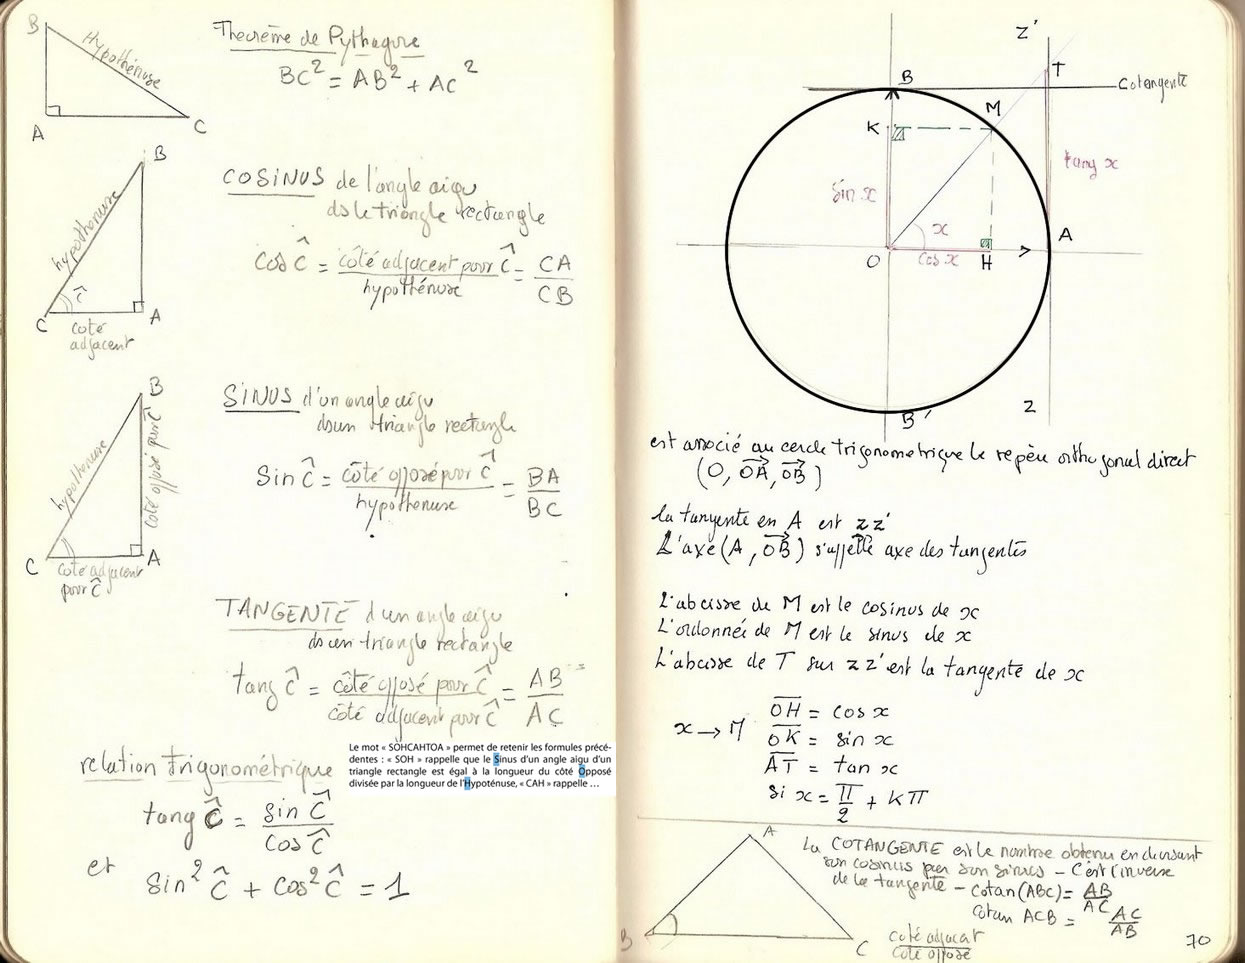 B
Hypothénuse
A
C
Theorème de Pythagore
BC² = AB² + AC²
B
hypothenuse
Ĉ
C
A
coté
adjacent
COSINUS de l'angle aigu
ds le triangle rectangle
Cos Ĉ = côté adjacent pour Ĉ / hypothénuse = CA / CB
B
hypothenuse
coté opposé pour Ĉ
C
A
coté adjacent
pour Ĉ
SINUS d'un angle aigu
ds un triangle rectangle
Sin Ĉ = côté opposé pour Ĉ / hypothenuse = BA / BC
TANGENTE d'un angle aigu
ds un triangle rectangle
tang Ĉ = côté opposé pour Ĉ / côté adjacent pour Ĉ = AB / AC =
Le mot « SOHCAHTOA » permet de retenir les formules précé-
dentes : « SOH » rappelle que le Sinus d'un angle aigu d'un
triangle rectangle est égal à la longueur du côté Opposé
divisée par la longueur de l'Hypoténuse, « CAH » rappelle ...
relation trigonométrique
tang Ĉ = sin Ĉ / Cos Ĉ
et
Sin² Ĉ + Cos² Ĉ = 1
Z'
B
T
Cotangente
M
K
tang x
Sin x
x
A
O
cos x
H
B'
Z
est associé au cercle trigonometrique le repère orthogonal direct
(O, OA, OB)
la tangente en A est zz'
L'axe (A, OB) s'appelle axe des tangentes
L'abcisse de M est le cosinus de x
L'ordonnée de M est le sinus de x
L'abcisse de T sur zz' est la tangente de x
x → M
OH = cos x
OK = sin x
AT = tan x
si x = π/2 + Kπ
A
B
C
La COTANGENTE est le nombre obtenu en divisant
son cosinus par son sinus - C'est l'inverse
de la tangente - Cotan(ABC) = AB / AC
Cotan ACB = AC / AB
Coté adjacat
Coté opposé
70